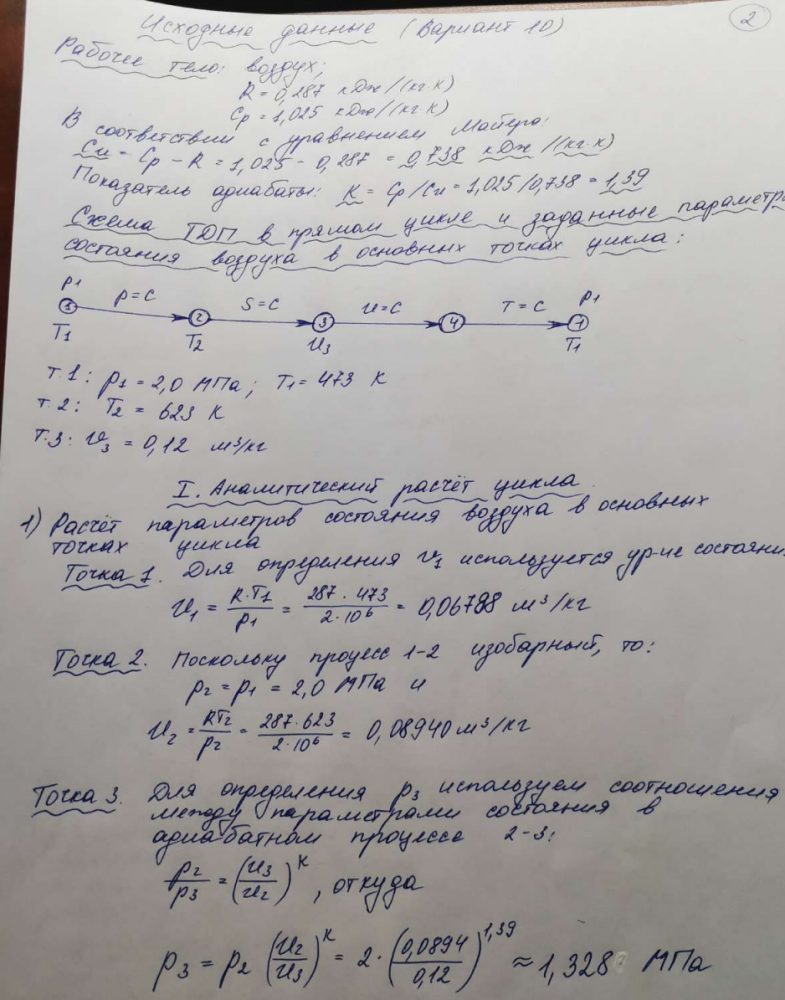 2
Исходные данные (Вариант 10)
Рабочее тело: воздух;
R = 0,287 кДж/(кг·К)
Cp = 1,025 кДж/(кг·К)
В соответствии с уравнением Майера:
Cи = Cp − R = 1,025 − 0,287 = 0,738 кДж/(кг·К)
Показатель адиабаты: K = Cp/Cи = 1,025/0,738 = 1,39
Схема ТДП в прямом цикле и заданные параметр
состояния воздуха в основных точках цикла:
P1 p=C S=C и=C T=C P1
1 2 3 4 1
T1 T2 и3 T1
т.1: p1 = 2,0 МПа; T1 = 473 K
т.2: T2 = 623 K
т.3: v3 = 0,12 м³/кг
I. Аналитический расчёт цикла
1) Расчёт параметров состояния воздуха в основных
точках цикла
Точка 1. Для определения v1 используется ур-ие состояни
и1 = R·T1/p1 = 287·473/2·10⁶ = 0,06788 м³/кг
Точка 2. Поскольку процесс 1-2 изобарный, то:
p2 = p1 = 2,0 МПа и
и2 = RT2/p2 = 287·623/2·10⁶ = 0,08940 м³/кг
Точка 3. Для определения p3 используем соотношения
между параметрами состояния в
адиабатном процессе 2-3:
p2/p3 = (и3/и2)^K, откуда
p3 = p2 (и2/и3)^K = 2·(0,0894/0,12)^1,39 ≈ 1,328 МПа